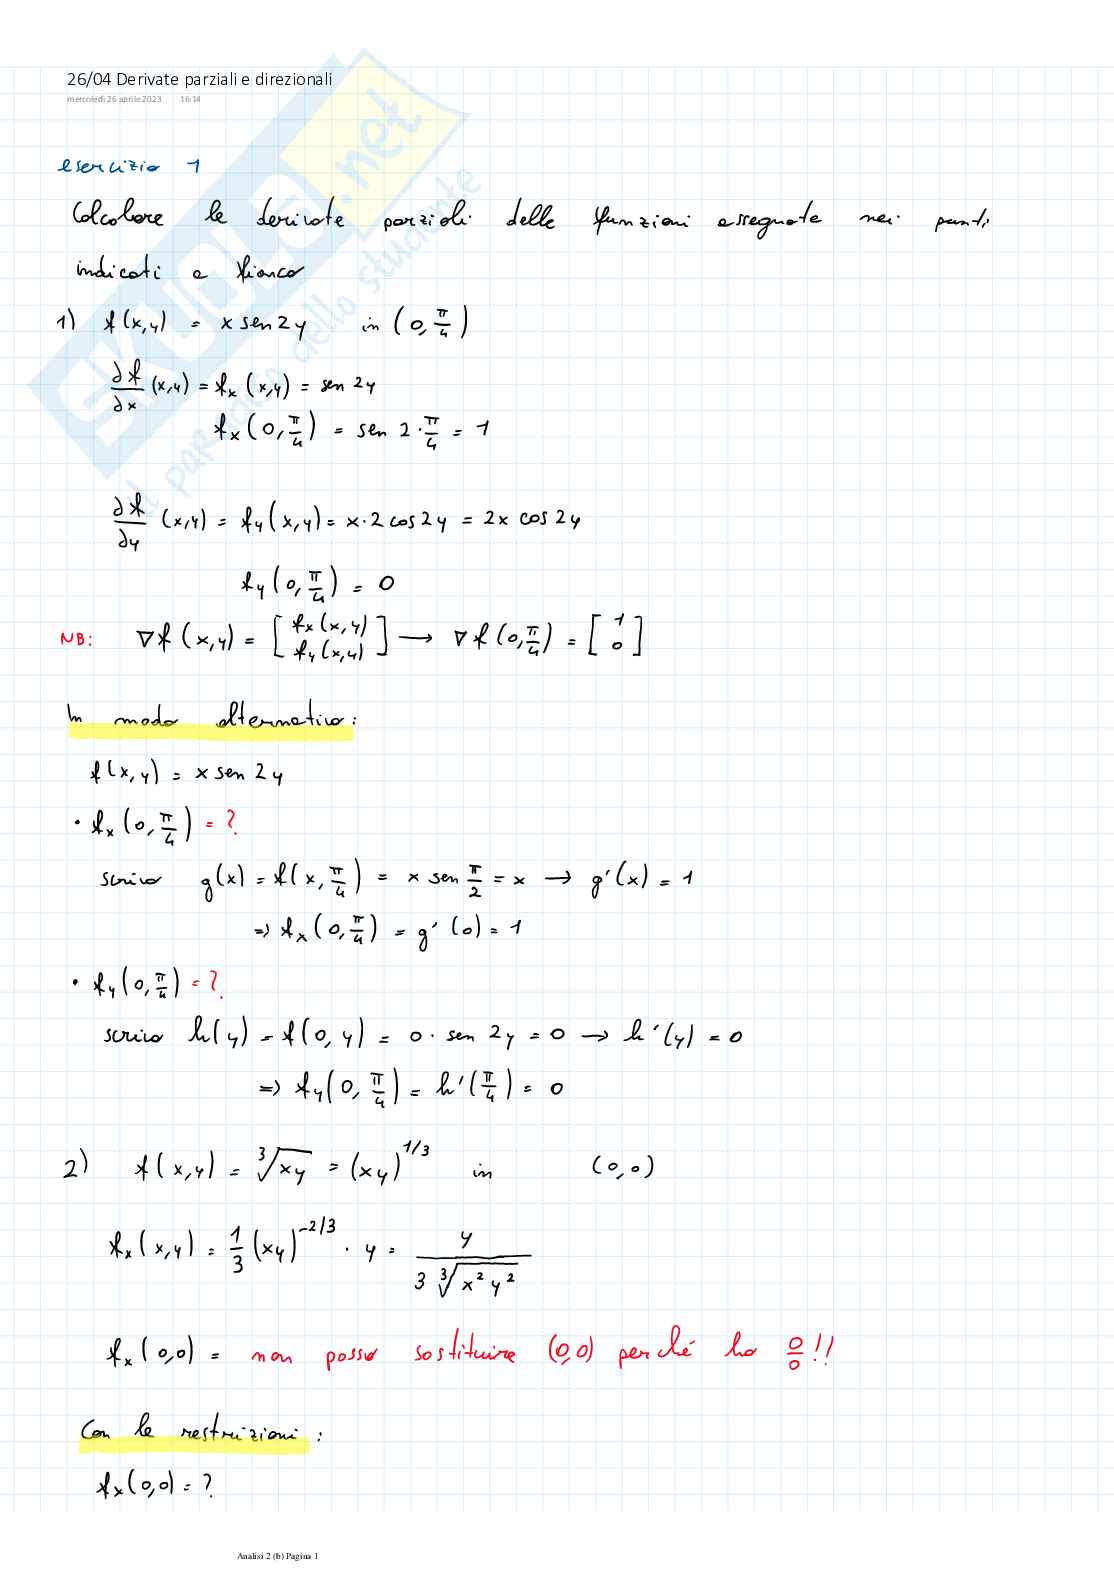 26/04 Derivate parziali e direzionali
mercoledì 26 aprile 2023 16:14
esercizio 1
Calcolare le derivate parziali delle funzioni assegnate nei punti
indicati a fianco
1) f(x,y) = x sen 2y in (0, π/4)
∂f/∂x (x,y) = fx (x,y) = sen 2y
fx (0, π/4) = sen 2 · π/4 = 1
∂f/∂y (x,y) = fy (x,y) = x · 2 cos 2y = 2x cos 2y
fy (0, π/4) = 0
NB: ∇f (x,y) = [fx (x,y) fy (x,y)] → ∇f (0, π/4) = [1 0]
In modo alternativo:
f(x,y) = x sen 2y
• fx (0, π/4) = ?
scrivo g(x) = f(x, π/4) = x sen π/2 = x → g'(x) = 1
=> fx (0, π/4) = g' (0) = 1
• fy (0, π/4) = ?
scrivo h(y) = f(0, y) = 0 · sen 2y = 0 → h'(y) = 0
=> fy (0, π/4) = h' (π/4) = 0
2) f(x,y) = ∛xy = (xy)^1/3 in (0,0)
fx (x,y) = 1/3 (xy)^-2/3 · y = y / 3 ∛x²y²
fx (0,0) = non posso sostituire (0,0) perché ho 0/0!!
Con le restrizioni:
fx (0,0) = ?
Analisi 2 (b) Pagina 1
SKUOLA.net
il paradiso dello studente